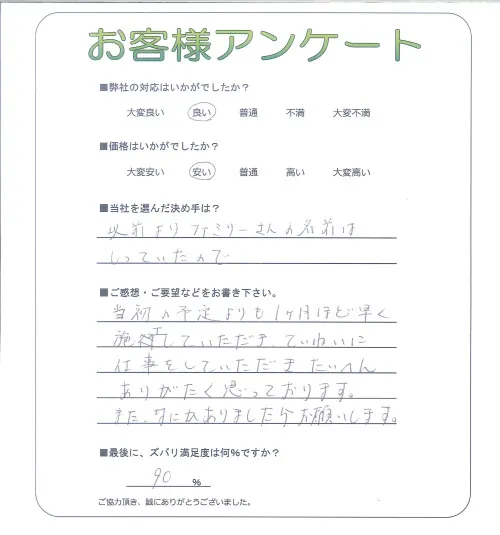 お客様アンケート
■弊社の対応はいかがでしたか？
大変良い 良い 普通 不満 大変不満
■価格はいかがでしたか？
大変安い 安い 普通 高い 大変高い
■当社を選んだ決め手は？
以前より ファミリーさんの名前は
しっていたので
■ご感想・ご要望などをお書き下さい。
当初の予定よりも1ヶ月ほど早く
施工していただき、ていねいに
仕事をしていただき たいへん
ありがたく思っております。
また、なにかありましたらお願いします。
■最後に、ズバリ満足度は何％ですか？
90 ％
ご協力頂き、誠にありがとうございました。